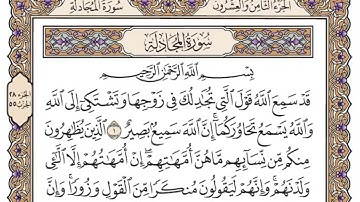 الجزء الثامن والعشرون
سورة المجادلة
سُورَةُ المُجَادلَةِ
بِسْمِ اللَّهِ الرَّحْمَٰنِ الرَّحِيمِ
قَدْ سَمِعَ اللَّهُ قَوْلَ الَّتِي تُجَادِلُكَ فِي زَوْجِهَا وَتَشْتَكِي إِلَى اللَّهِ
وَاللَّهُ يَسْمَعُ تَحَاوُرَكُمَا إِنَّ اللَّهَ سَمِيعٌ بَصِيرٌ ١ الَّذِينَ يُظَاهِرُونَ
مِنكُم مِّن نِّسَائِهِم مَّا هُنَّ أُمَّهَاتِهِمْ إِنْ أُمَّهَاتُهُمْ إِلَّا الَّٰٓـِٔي
وَلَدْنَهُمْ وَإِنَّهُمْ لَيَقُولُونَ مُنكَرًا مِّنَ الْقَوْلِ وَزُورًا وَإِنَّ
الجزء ٢٨
الحزب ٥٥